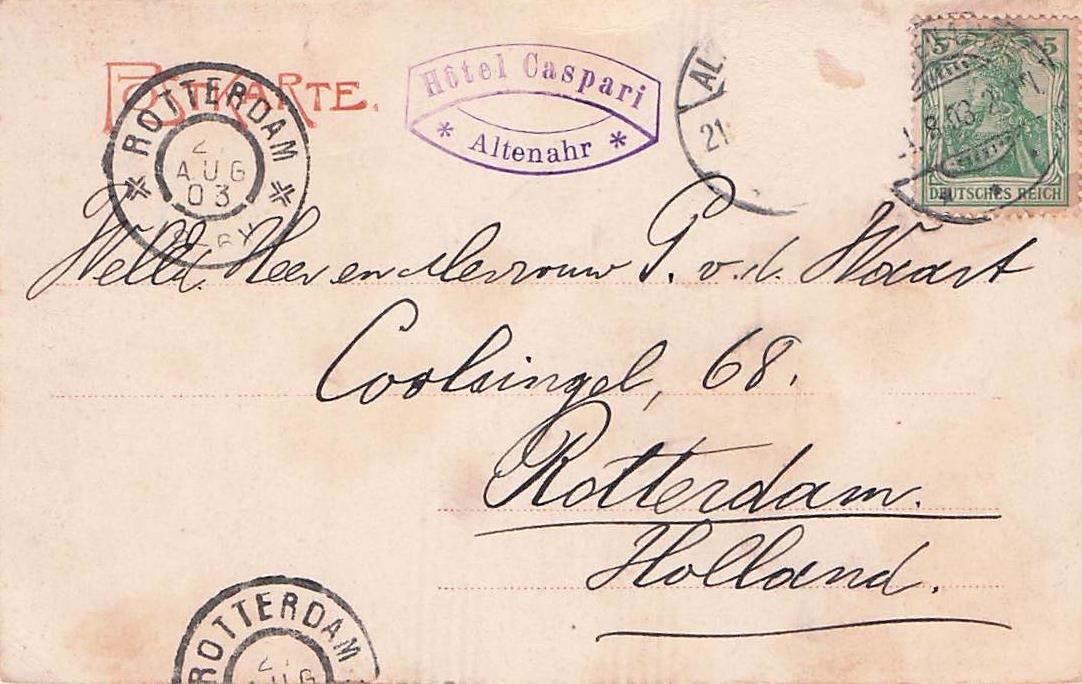 POSTKARTE.
ROTTERDAM
AUG
03
Hôtel Caspari
* Altenahr *
21
5 5
DEUTSCHES REICH
Heer en Mevrouw P. v. d. Waart
Coolsingel, 68.
Rotterdam.
Holland.
ROTTERDAM
AUG